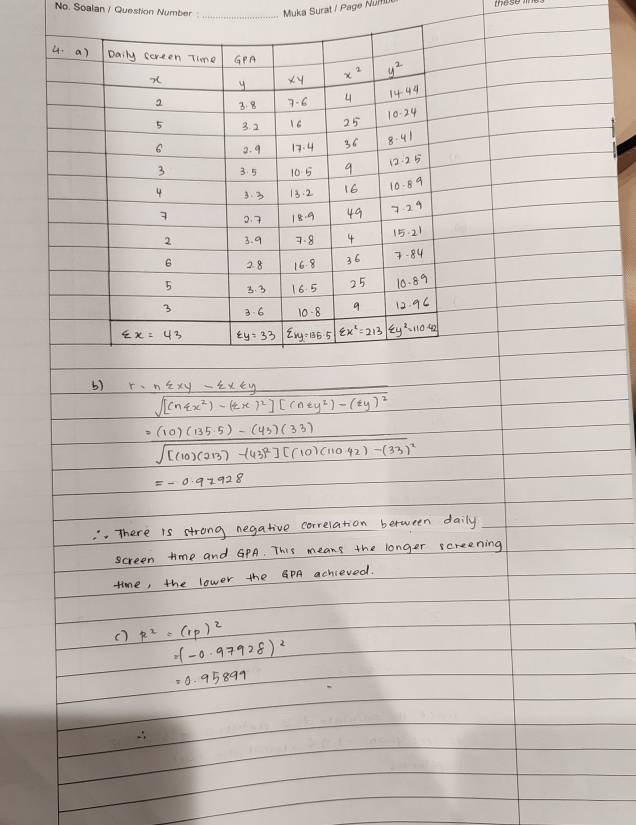 No. Soalan / Question Number : Muka Surat / Page
these lines
4. a) Daily screen Time GPA
x y xy x² y²
2 3.8 7.6 4 14.44
5 3.2 16 25 10.24
6 2.9 17.4 36 8.41
3 3.5 10.5 9 12.25
4 3.3 13.2 16 10.89
7 2.7 18.9 49 7.29
2 3.9 7.8 4 15.21
6 2.8 16.8 36 7.84
5 3.3 16.5 25 10.89
3 3.6 10.8 9 12.96
Σx = 43 Σy = 33 Σxy = 135.5 Σx² = 213 Σy² = 110.42
b) r = nΣxy - ΣxΣy
√[(nΣx²) - (Σx)²] [(nΣy²) - (Σy)²
= (10)(135.5) - (43)(33)
√[(10)(213) - (43)²] [(10)(110.42) - (33)²
= - 0.97928
∴ There is strong negative correlation between daily
screen time and GPA. This means the longer screening
time, the lower the GPA achieved.
c) R² = (rp)²
= (-0.97928)²
= 0.95899
∴